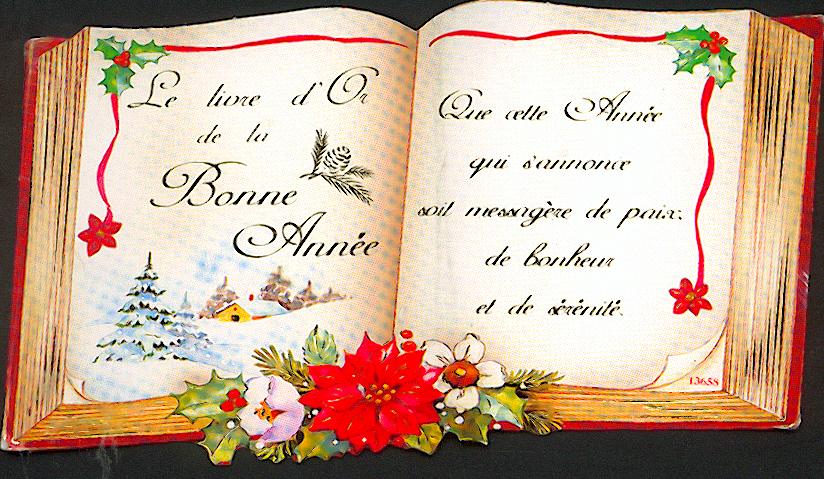 Le livre d'Or
de la
Bonne
Année
Que cette Année
qui s'annonce
soit messagère de paix.
de bonheur
et de sérénité.
13658